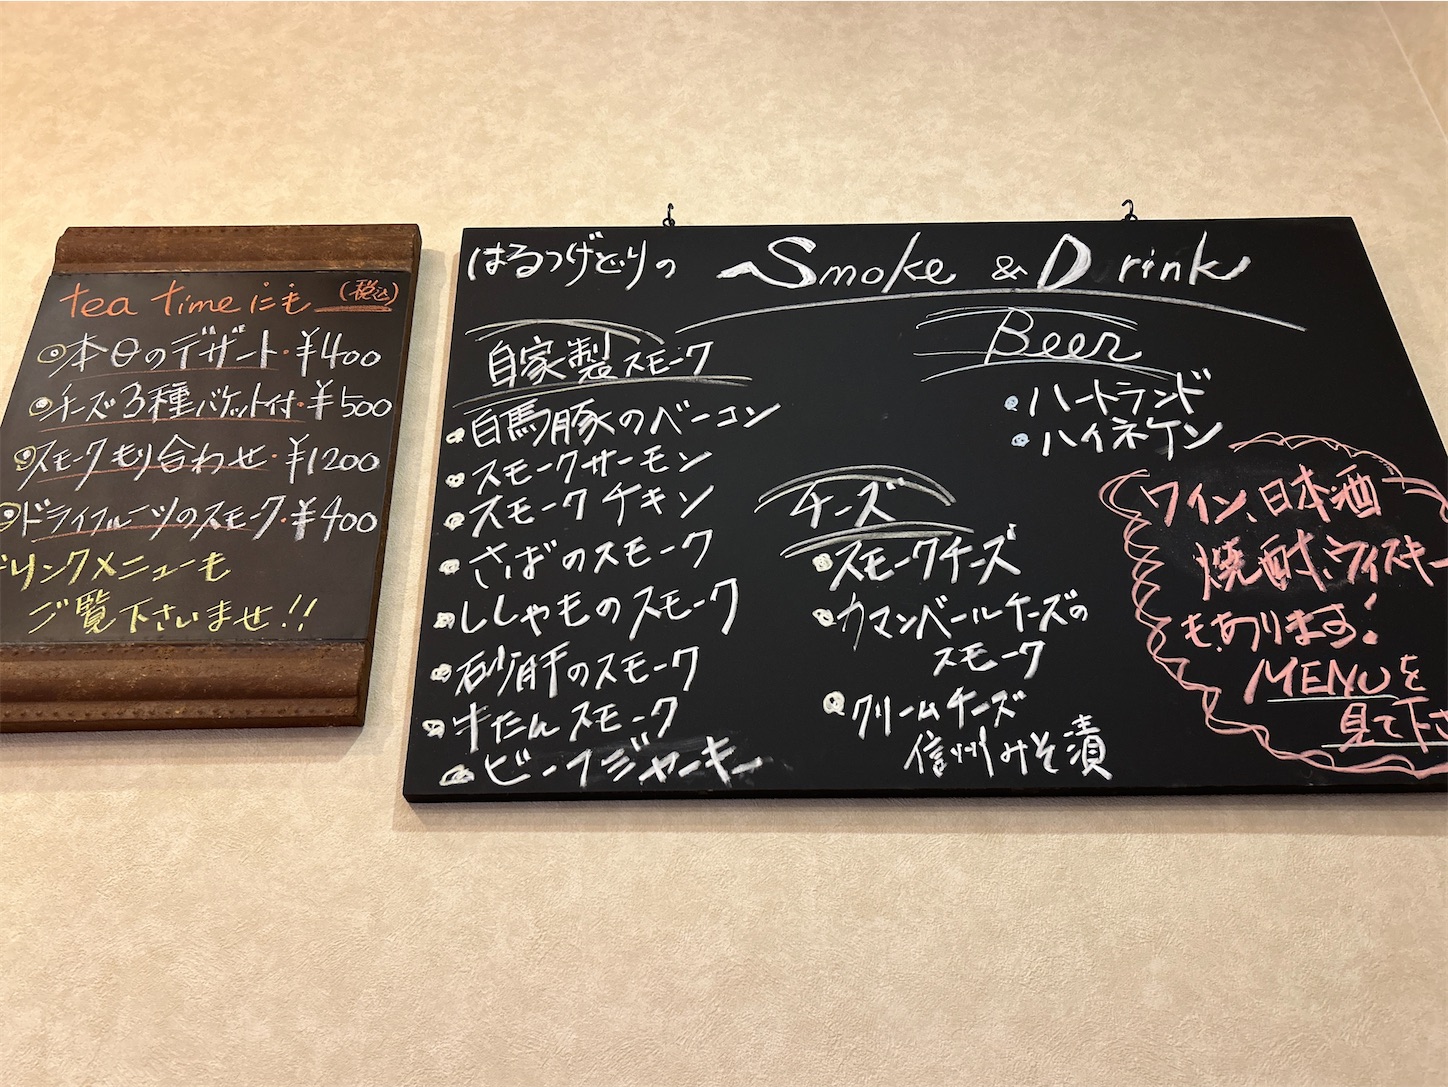 tea timeにも(税込)
本日のデザート・¥400
チーズ3種バケット付・¥500
スモークもり合わせ・¥1200
ドライフルーツのスモーク・¥400
ドリンクメニューも
ご覧下さいませ!!
はるつげどりの Smoke & Drink
自家製スモーク
白馬豚のベーコン
スモークサーモン
スモークチキン
さばのスモーク
ししゃものスモーク
砂肝のスモーク
牛たんスモーク
ビーフジャーキー
Beer
ハートランド
ハイネケン
チーズ
スモークチーズ
カマンベールチーズの
スモーク
クリームチーズ
信州みそ漬
ワイン、日本酒
焼酎、ウイスキー
もあります!
MENUを
見て下さ